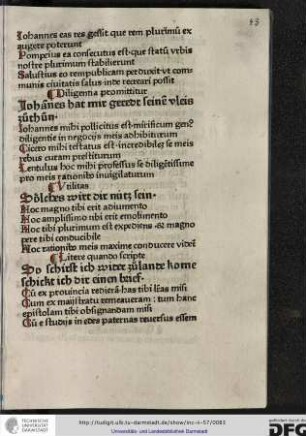 Iohannes eas res gessit que rem plurimũ ex
augere poterunt
Pompeius ea consecutus est·que statũ vrbis
nostre plurimum stabilierunt
Salustius eo rempublicam perduxit·vt com
munis ciuitatis salus inde recreari possit
¶Diligentia promittitur
Iohãnes hat mir geredt seinẽ vleis
zůthůn·
Iohannes mihi pollicitus est·mirificum
diligentie in negocijs meis adhibiturum
Cicero mihi testatus est·incredibiliter se meis
rebus curam prestiturum
Lentulus hoc mihi professus se diligẽtissime
pro meis rationibꝰ inuigilaturum
¶Vtilitas
Sõlches wirt dir nütz sein·
Hoc magno tibi erit adiumento
Hoc amplissimo tibi erit emolimento
Hoc tibi plurimum est expediens·et magno
pere tibi conducibile
Hoc rationibꝰ meis maxime conducere videt̃
¶Litere quando scripte
So schirst ich wider zůlante kome
schickt ich dir einen brief·
Cũ ex prouincia redierã·has tibi lr̃as misi
Cum ex maistratu remeaueram·tum hanc
epistolam tibi obsignandam misi
Cũ e studijs in edes paternas reuersus essem
TECHNISCHE
UNIVERSITÄT
DARMSTADT
http://tudigit.ulb.tu-darmstadt.de/show/inc-ii-57/0083
Universitäts- und Landesbibliothek Darmstadt
gefördert durch die
DFG